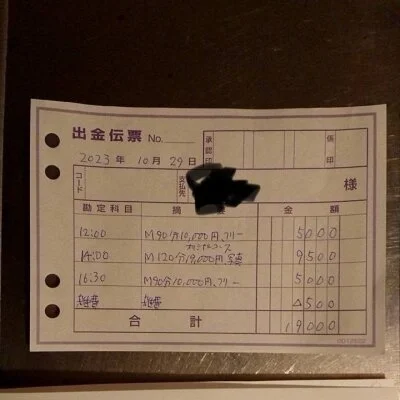 出金伝票 No.
承認印 係印
2023年 10月 29日
コード 支払先 様
勘定科目 摘要 金額
12:00 M90分10,000円、フリー 5000
オリジナルコース
14:00 M120分19,000円、写真 9500
16:30 M90分10,000円、フリー 5000
雑費 雑費 △500
合計 19000